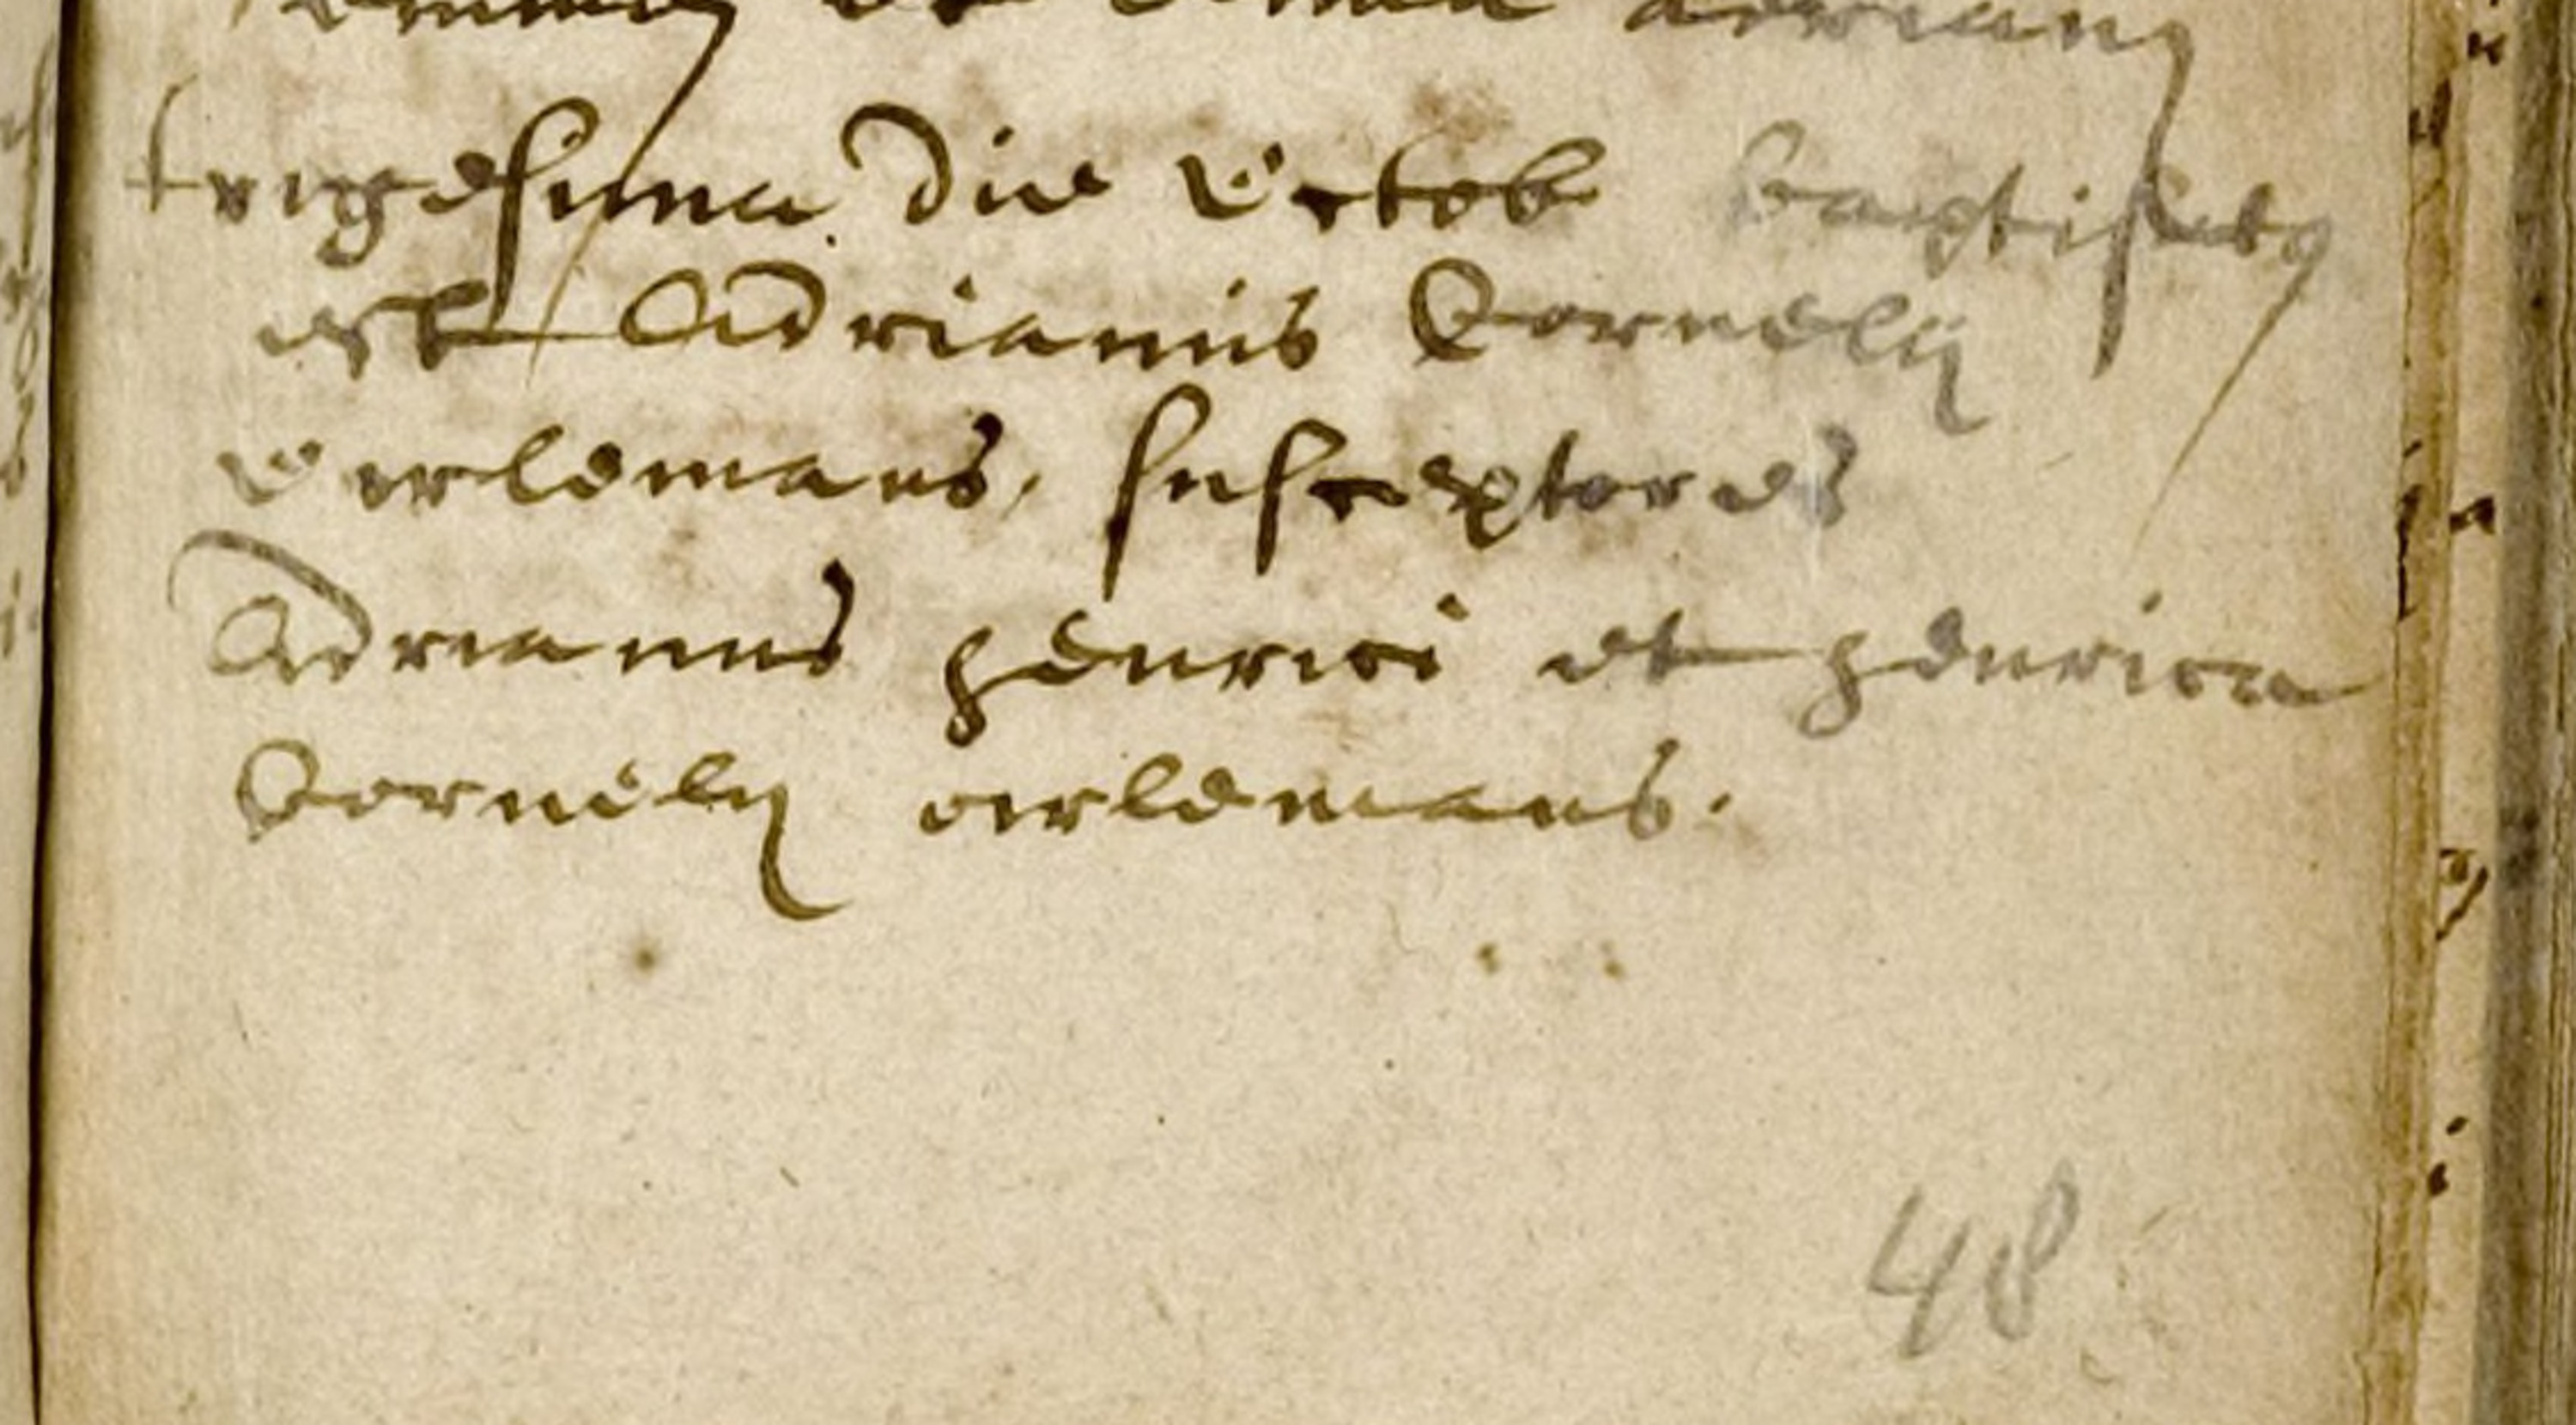 et
trigesima die Octob baptisatus
est Adrianus Cornelij
Oerlemans, susceptores
Adrianus Henrici et Henrica
Cornelij oerlemans.
48